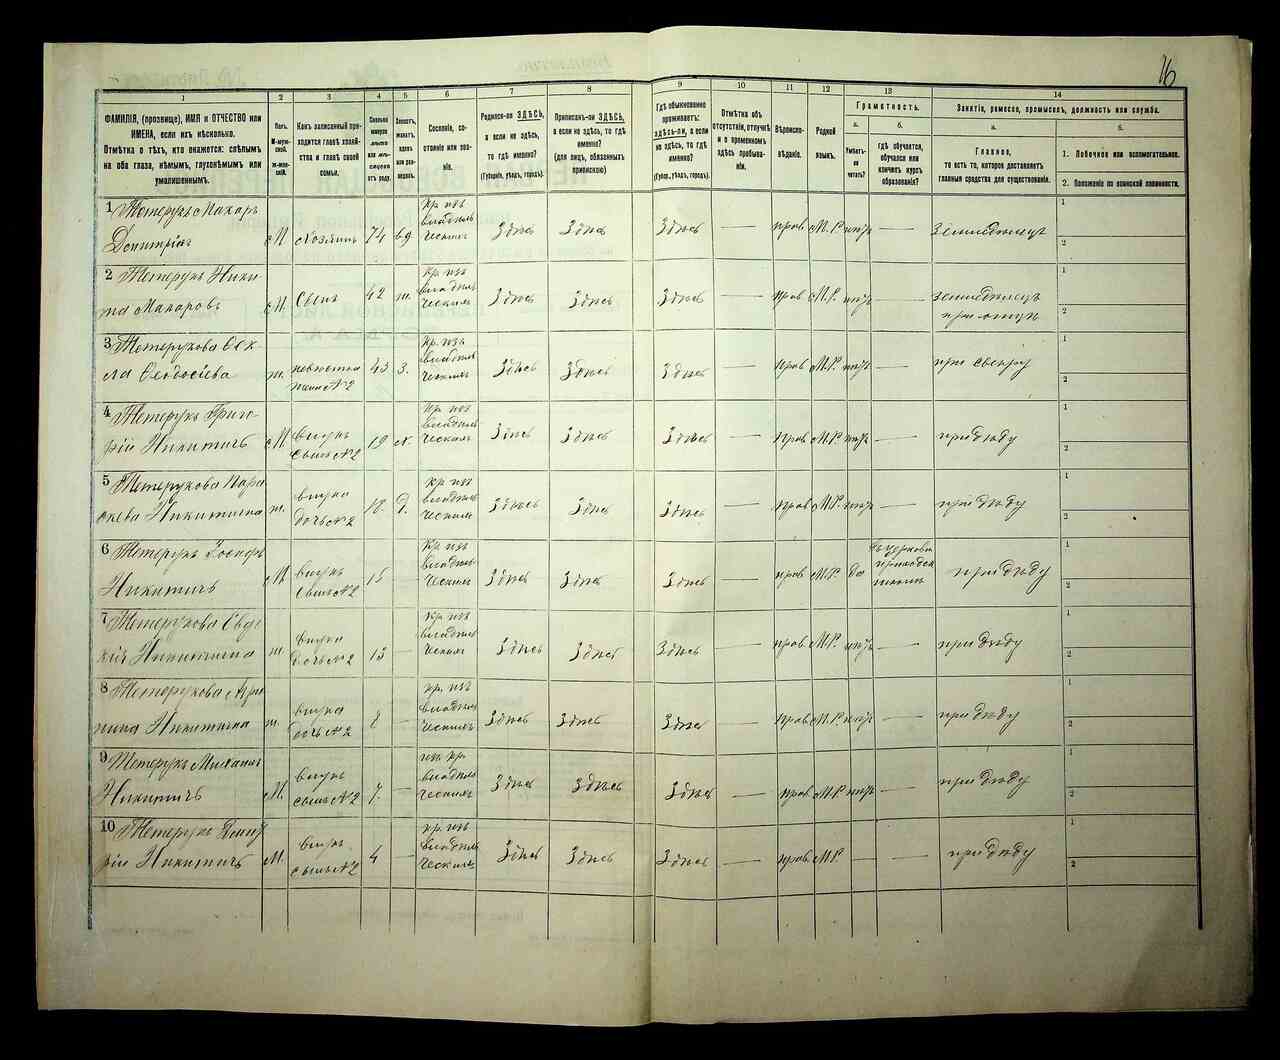 16
1
2
3
4
5
6
7
8
9
10
11
12
13
14
ФАМИЛІЯ, (прозвище), ИМЯ и ОТЧЕСТВО или
ИМЕНА, если ихъ нѣсколько.
Отмѣтка о тѣхъ, кто окажется: слѣпымъ
на оба глаза, нѣмымъ, глухонѣмымъ или
умалишеннымъ.
Полъ.
М-мужской.
ж-женскій.
Какъ записанный приходится главѣ хозяйства и главѣ своей семьи.
Сословіе, состояніе или званіе.
Родился-ли ЗДѢСЬ,
а если не здѣсь,
то гдѣ именно?
(Губернія, уѣздъ, городъ).
Приписанъ-ли ЗДѢСЬ,
а если не здѣсь, то гдѣ
именно?
(для лицъ, обязанныхъ
припискою)
Гдѣ обыкновенно
проживаетъ:
ЗДѢСЬ-ЛИ, а если
не здѣсь, то гдѣ
именно?
(Губер., уѣздъ, городъ).
Отмѣтка объ
отсутствіи, отлучкѣ
и о временномъ
здѣсь пребываніи.
Вѣроисповѣданіе.
Родной
языкъ.
Грамотность.
а.
Умѣетъ-ли
читать?
б.
Гдѣ обучается,
обучался или
кончилъ курсъ
образованія?
Занятіе, ремесло, промыселъ, должность или служба.
а.
Главное,
то есть то, которое доставляетъ
главныя средства для существованія.
б.
1. Побочное или вспомогательное.
2. Положеніе по воинской повинности.
1 Тетерукъ Макаръ
Дмитріевъ М хозяинъ 74 вд кр. изъ владѣльческихъ здѣсь здѣсь здѣсь — прав М.Р. нѣтъ — земледѣлецъ 1 2
2 Тетерукъ Никита Макаровъ М. Сынъ 42 ж. кр. изъ владѣльческихъ здѣсь здѣсь здѣсь — прав М.Р. нѣтъ — земледѣлецъ при отцѣ 1 2
3 Тетерукова Ѳекла Ѳеодосіева ж. невѣстка жена №2 43 з. кр. изъ владѣльческихъ здѣсь здѣсь здѣсь — прав М.Р. нѣтъ — при свекру 1 2
4 Тетерукъ Григорій Никитичъ М внукъ сынъ №2 19 х. кр. изъ владѣльческихъ здѣсь здѣсь здѣсь — прав М.Р. нѣтъ — при дѣду 1 2
5 Тетерукова Параскева Никитина ж. внука дочь №2 18 д. кр. изъ владѣльческихъ здѣсь здѣсь здѣсь — прав М.Р. нѣтъ — при дѣду 1 2
6 Тетерукъ Іосифъ
Никитичъ М внукъ сынъ №2 15 кр. изъ владѣльческихъ здѣсь здѣсь здѣсь — прав М.Р. да въ церковноприходск школѣ при дѣду 1 2
7 Тетерукова Евдокія Никитина ж внука дочь №2 13 — кр. изъ владѣльческихъ здѣсь здѣсь здѣсь — прав М.Р. нѣтъ — при дѣду 1 2
8 Тетерукова Никитична ж. внука дочь №2 8 — кр. изъ владѣльческихъ здѣсь здѣсь здѣсь — прав М.Р. нѣтъ — при дѣду 1 2
9 Тетерукъ Михаилъ
Никитичъ М. внукъ сынъ №2 7. — изъ кр. владѣльческихъ здѣсь здѣсь здѣсь — прав. М.Р. нѣтъ — при дѣду 1 2
10 Тетерукъ Дмитрій Никитичъ М. внукъ сынъ №2 4 — кр. изъ владѣльческихъ здѣсь здѣсь здѣсь — прав. М.Р. при дѣду 1 2